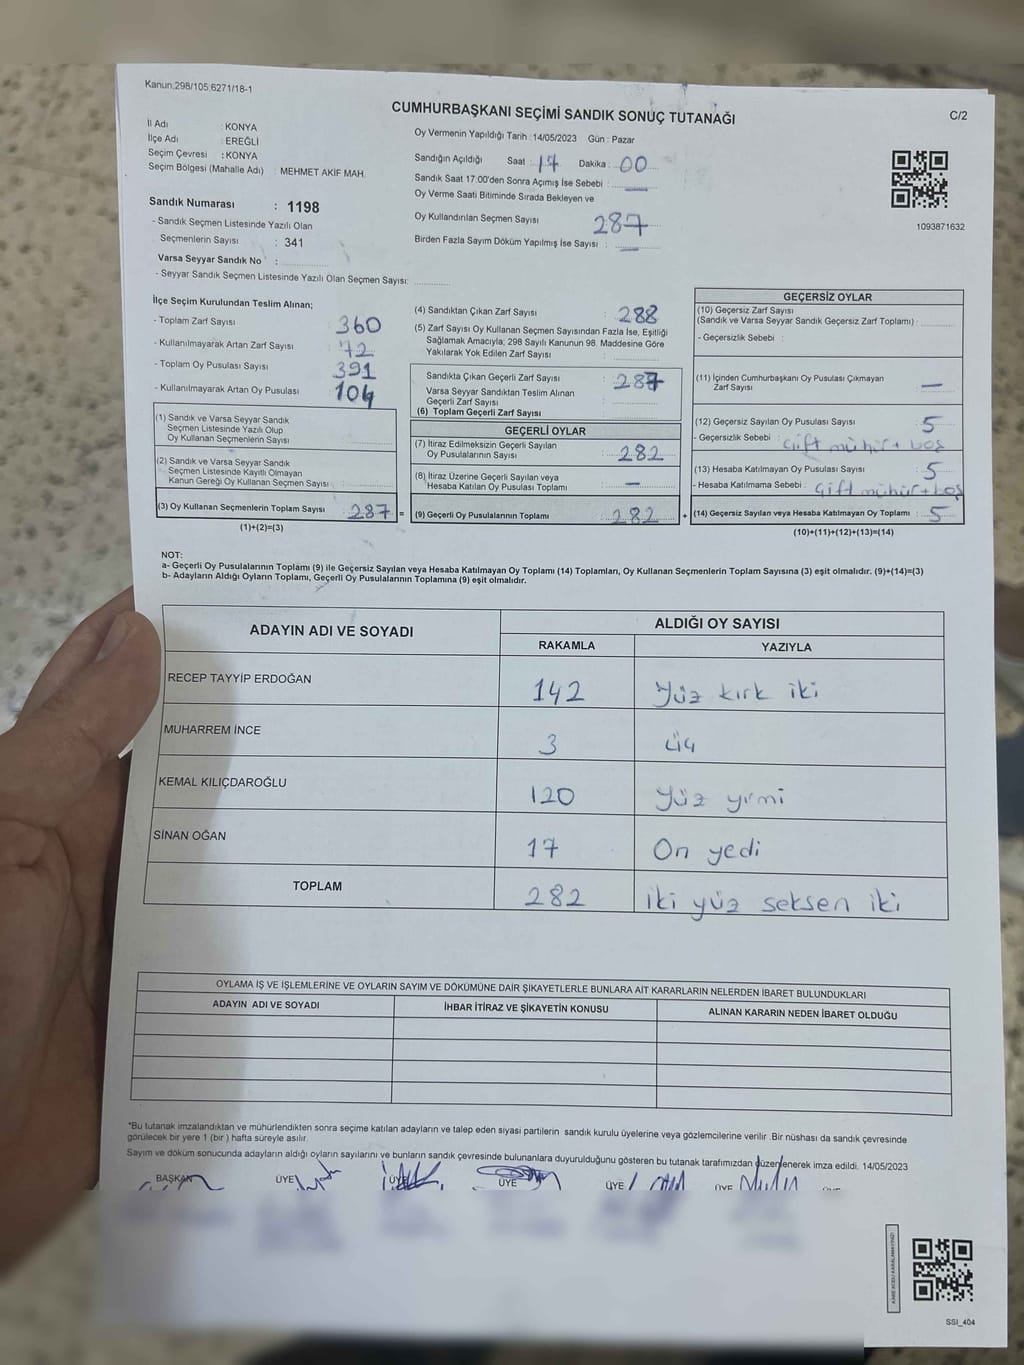 Kanun:298/105;6271/18-1
CUMHURBAŞKANI SEÇİMİ SANDIK SONUÇ TUTANAĞI
C/2
İl Adı : KONYA
İlçe Adı : EREĞLİ
Seçim Çevresi : KONYA
Seçim Bölgesi (Mahalle Adı) : MEHMET AKİF MAH.
Oy Vermenin Yapıldığı Tarih : 14/05/2023 Gün : Pazar
Sandığın Açıldığı Saat : 17 Dakika : 00
Sandık Saat 17:00'den Sonra Açımış İse Sebebi : —
Oy Verme Saati Bitiminde Sırada Bekleyen ve
Oy Kullandırılan Seçmen Sayısı 287
Birden Fazla Sayım Döküm Yapılmış İse Sayısı : —
1093871632
Sandık Numarası : 1198
- Sandık Seçmen Listesinde Yazılı Olan
Seçmenlerin Sayısı : 341
Varsa Seyyar Sandık No :
- Seyyar Sandık Seçmen Listesinde Yazılı Olan Seçmen Sayısı:
İlçe Seçim Kurulundan Teslim Alınan;
- Toplam Zarf Sayısı : 360
- Kullanılmayarak Artan Zarf Sayısı : 72
- Toplam Oy Pusulası Sayısı : 391
- Kullanılmayarak Artan Oy Pusulası : 104
(1) Sandık ve Varsa Seyyar Sandık
Seçmen Listesinde Yazılı Olup
Oy Kullanan Seçmenlerin Sayısı :
(2) Sandık ve Varsa Seyyar Sandık
Seçmen Listesinde Kayıtlı Olmayan
Kanun Gereği Oy Kullanan Seçmen Sayısı :
(3) Oy Kullanan Seçmenlerin Toplam Sayısı : 287 =
(1)+(2)=(3)
(4) Sandıktan Çıkan Zarf Sayısı : 288
(5) Zarf Sayısı Oy Kullanan Seçmen Sayısından Fazla İse, Eşitliği
Sağlamak Amacıyla; 298 Sayılı Kanunun 98. Maddesine Göre
Yakılarak Yok Edilen Zarf Sayısı :
Sandıkta Çıkan Geçerli Zarf Sayısı : 287
Varsa Seyyar Sandıktan Teslim Alınan
Geçerli Zarf Sayısı :
(6) Toplam Geçerli Zarf Sayısı :
GEÇERLİ OYLAR
(7) İtiraz Edilmeksizin Geçerli Sayılan
Oy Pusulalarının Sayısı : 282
(8) İtiraz Üzerine Geçerli Sayılan veya
Hesaba Katılan Oy Pusulası Toplamı : —
(9) Geçerli Oy Pusulalarının Toplamı : 282 +
GEÇERSİZ OYLAR
(10) Geçersiz Zarf Sayısı
(Sandık ve Varsa Seyyar Sandık Geçersiz Zarf Toplamı) :
- Geçersizlik Sebebi :
(11) İçinden Cumhurbaşkanı Oy Pusulası Çıkmayan
Zarf Sayısı : —
(12) Geçersiz Sayılan Oy Pusulası Sayısı : 5
- Geçersizlik Sebebi : Çift mühür + boş
(13) Hesaba Katılmayan Oy Pusulası Sayısı : 5
- Hesaba Katılmama Sebebi : Çift mühür + boş
(14) Geçersiz Sayılan veya Hesaba Katılmayan Oy Toplamı : 5
(10)+(11)+(12)+(13)=(14)
NOT:
a- Geçerli Oy Pusulalarının Toplamı (9) ile Geçersiz Sayılan veya Hesaba Katılmayan Oy Toplamı (14) Toplamları, Oy Kullanan Seçmenlerin Toplam Sayısına (3) eşit olmalıdır. (9)+(14)=(3)
b- Adayların Aldığı Oyların Toplamı, Geçerli Oy Pusulalarının Toplamına (9) eşit olmalıdır.
ADAYIN ADI VE SOYADI ALDIĞI OY SAYISI
RAKAMLA YAZIYLA
RECEP TAYYİP ERDOĞAN 142 Yüz kırk iki
MUHARREM İNCE 3 üç
KEMAL KILIÇDAROĞLU 120 Yüz yirmi
SİNAN OĞAN 17 On yedi
TOPLAM 282 iki yüz seksen iki
OYLAMA İŞ VE İŞLEMLERİNE VE OYLARIN SAYIM VE DÖKÜMÜNE DAİR ŞİKAYETLERLE BUNLARA AİT KARARLARIN NELERDEN İBARET BULUNDUKLARI
ADAYIN ADI VE SOYADI İHBAR İTİRAZ VE ŞİKAYETİN KONUSU ALINAN KARARIN NEDEN İBARET OLDUĞU
*Bu tutanak imzalandıktan ve mühürlendikten sonra seçime katılan adayların ve talep eden siyasi partilerin sandık kurulu üyelerine veya gözlemcilerine verilir .Bir nüshası da sandık çevresinde
görülecek bir yere 1 (bir ) hafta süreyle asılır.
Sayım ve döküm sonucunda adayların aldığı oyların sayılarını ve bunların sandık çevresinde bulunanlara duyurulduğunu gösteren bu tutanak tarafımızdan düzenlenerek imza edildi. 14/05/2023
BAŞKAN ÜYE ÜYE ÜYE ÜYE ÜYE
SSI_404